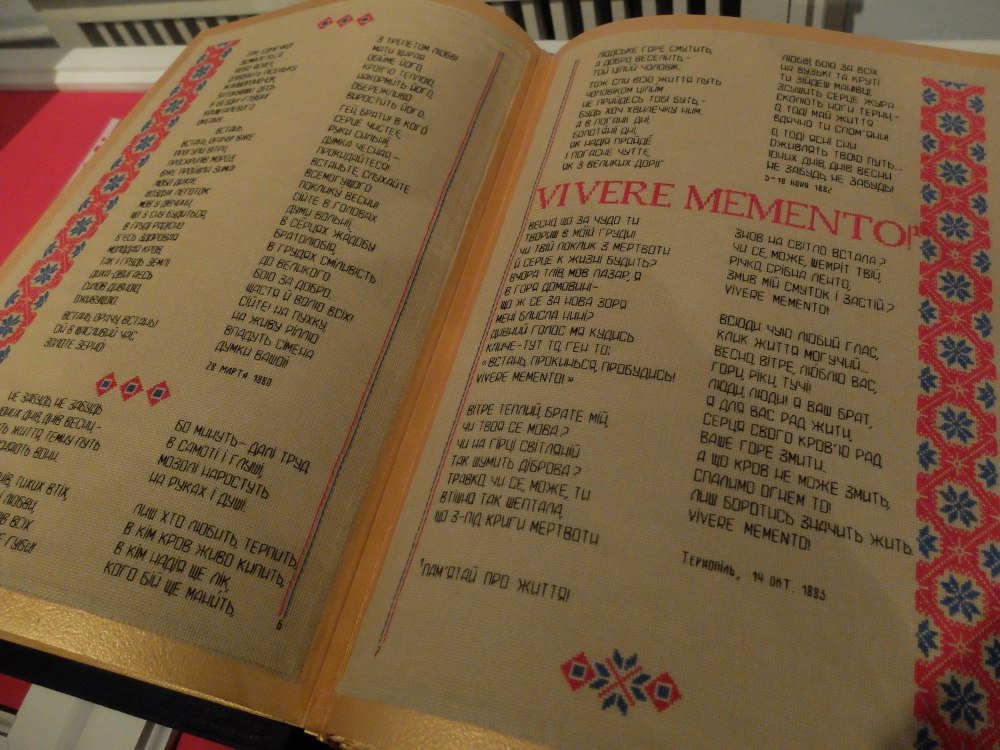 ВСТАНЬ,
ВСТАНЬ, ОРАЧУ! ВЖЕ
ПРОГУЛИ ВІТРИ,
ПРОСКРИПІВ МОРОЗ,
ВЖЕ ПРОЙШЛА ЗИМА!
ЛЮБО ДИХАЄ
ВОЗДУХ ЛЕГОТОМ;
МОВ У ДІВЧИНИ,
ЩО З СНУ БУДИТЬСЯ,
В ГРУДІ РАДІСНО
Б'ЄСЬ ЗДОРОВАЯ
МОЛОДАЯ КРОВ,
ТАК І ГРУДЬ ЗЕМЛІ
ДИХА-ДВИГАЄСЬ
СИЛОВ ДИВНОЮ,
ОЖИВУЩОЮ.
ВСТАНЬ, ОРАЧУ, ВСТАНЬ!
СІЙ В ЩАСЛИВИЙ ЧАС
ЗОЛОТЕ ЗЕРНО!
З ТРЕПЕТОМ ЛЮБВІ
МАТИ ЩИРАЯ
ОБІЙМЕ ЙОГО,
КРОВ'Ю ТЕПЛОЮ
НАКОРМИТЬ ЙОГО,
ОБЕРЕЖЛИВО
ВИРОСТИТЬ ЙОГО.
ГЕЙ, БРАТИ! В КОГО
СЕРЦЕ ЧИСТЕЄ,
РУКИ СИЛЬНІЇ,
ДУМКА ЧЕСНАЯ,—
ПРОКИДАЙТЕСЯ!
ВСТАНЬТЕ, СЛУХАЙТЕ
ВСЕМОГУЩОГО
ПОКЛИКУ ВЕСНИ!
СІЙТЕ В ГОЛОВАХ
ДУМИ ВОЛЬНІЇ,
В СЕРЦЯХ ЖАДОБУ
БРАТОЛЮБІЯ,
В ГРУДАХ СМІЛИВІСТЬ
ДО ВЕЛИКОГО
БОЮ ЗА ДОБРО,
ЩАСТЯ Й ВОЛЮ ВСІХ!
СІЙТЕ! НА ПУХКУ,
НА ЖИВУ РІЛЛЮ
ВПАДУТЬ СІМЕНА
ДУМКИ ВАШОЇ!
28 МАРТА 1880
НЕ ЗАБУДЬ, НЕ ЗАБУДЬ
ЮНИХ ДНІВ, ДНІВ ВЕСНИ,—
ЖИТТЯ, ТЕМНУ ПУТЬ
ВОНИ.
ТИХИХ ВТІХ,
ЛЮБВИ,
ВСІХ
ГУБИ!
БО МИНУТЬ— ДАЛІ ТРУД
В САМОТІ І ГЛУШІ,
МОЗОЛІ НАРОСТУТЬ
НА РУКАХ І ДУШІ.
ЛИШ ХТО ЛЮБИТЬ, ТЕРПИТЬ,
В КІМ КРОВ ЖИВО КИПИТЬ,
В КІМ НАДІЯ ЩЕ ЛІК,
КОГО БІЙ ЩЕ МАНИТЬ,
6
ЛЮДСЬКЕ ГОРЕ СМУТИТЬ,
А ДОБРО ВЕСЕЛИТЬ,—
ТОЙ ЦІЛИЙ ЧОЛОВІК.
ТОЖ СЛИ ВСЮ ЖИТТЯ ПУТЬ
ЧОЛОВІКОМ ЦІЛИМ
НЕ ПРИЙДЕСЬ ТОБІ БУТЬ,—
БУДЬ ХОЧ ХВИЛЕЧКУ НИМ.
А В ПОГАНІ ДНІ,
БОЛОТЯНІ ДНІ,
ЯК НАДІЯ ПРОЙДЕ
І ПОГАСНЕ ЧУТТЄ,
ЯК З ВЕЛИКИХ ДОРІГ
ЛЮБВІ, БОЮ ЗА ВСІХ
НА ВУЗЬКІ ТА КРУТІ
ТИ ЗІЙДЕШ МАНІВЦІ,
ЗСУШИТЬ СЕРЦЕ ЖУРА,
СКОЛЮТЬ НОГИ ТЕРНИ,—
О, ТОДІ МАЙ ЖИТТЯ
ВДЯЧНО ТИ СПОМ'ЯНИ!
О, ТОДІ ЯСНІ СНИ
ОЖИВЛЯТЬ ТВОЮ ПУТЬ...
ЮНИХ ДНІВ, ДНІВ ВЕСНИ
НЕ ЗАБУДЬ, НЕ ЗАБУДЬ!
3—18 ЮНИЯ 1882
VIVERE MEMENTO!¹
ВЕСНО, ЩО ЗА ЧУДО ТИ
ТВОРИШ В МОЇЙ ГРУДИ!
ЧИ ТВІЙ ПОКЛИК З МЕРТВОТИ
Й СЕРЦЕ К ЖИЗНІ БУДИТЬ?
ВЧОРА ТЛІВ, МОВ ЛАЗАР, Я
В ГОРЯ ДОМОВИНІ—
ЩО Ж СЕ ЗА НОВА ЗОРЯ
МЕНІ БЛИСЛА НИНІ?
ДИВНИЙ ГОЛОС МЯ КУДИСЬ
КЛИЧЕ—ТУТ ТО, ГЕН ТО:
«ВСТАНЬ, ПРОКИНЬСЯ, ПРОБУДИСЬ!
VIVERE MEMENTO!»
ВІТРЕ ТЕПЛИЙ, БРАТЕ МІЙ,
ЧИ ТВОЯ СЕ МОВА?
ЧИ НА ГІРЦІ СВІТЛЯНІЙ
ТАК ШУМИТЬ ДІБРОВА?
ТРАВКО, ЧИ СЕ, МОЖЕ, ТИ
ВТІШНО ТАК ШЕПТАЛА,
ЩО З-ПІД КРИГИ МЕРТВОТИ
ЗНОВ НА СВІТЛО ВСТАЛА?
ЧИ СЕ, МОЖЕ, ШЕМРІТ ТВІЙ,
РІЧКО, СРІБНА ЛЕНТО,
ЗМИВ МІЙ СМУТОК І ЗАСТІЙ?
VIVERE MEMENTO!
ВСЮДИ ЧУЮ ЛЮБИЙ ГЛАС,
КЛИК ЖИТТЯ МОГУЧИЙ...
ВЕСНО, ВІТРЕ, ЛЮБЛЮ ВАС,
ГОРИ, РІКИ, ТУЧІ!
ЛЮДИ, ЛЮДИ! Я ВАШ БРАТ,
Я ДЛЯ ВАС РАД ЖИТИ,
СЕРЦЯ СВОГО КРОВ'Ю РАД
ВАШЕ ГОРЕ ЗМИТИ.
А ЩО КРОВ НЕ МОЖЕ ЗМИТЬ,
СПАЛИМО ОГНЕМ ТО!
ЛИШ БОРОТИСЬ ЗНАЧИТЬ ЖИТЬ.
VIVERE MEMENTO!
ТЕРНОПІЛЬ, 14 ОКТ. 1883
¹ПАМ'ЯТАЙ ПРО ЖИТТЯ!
7